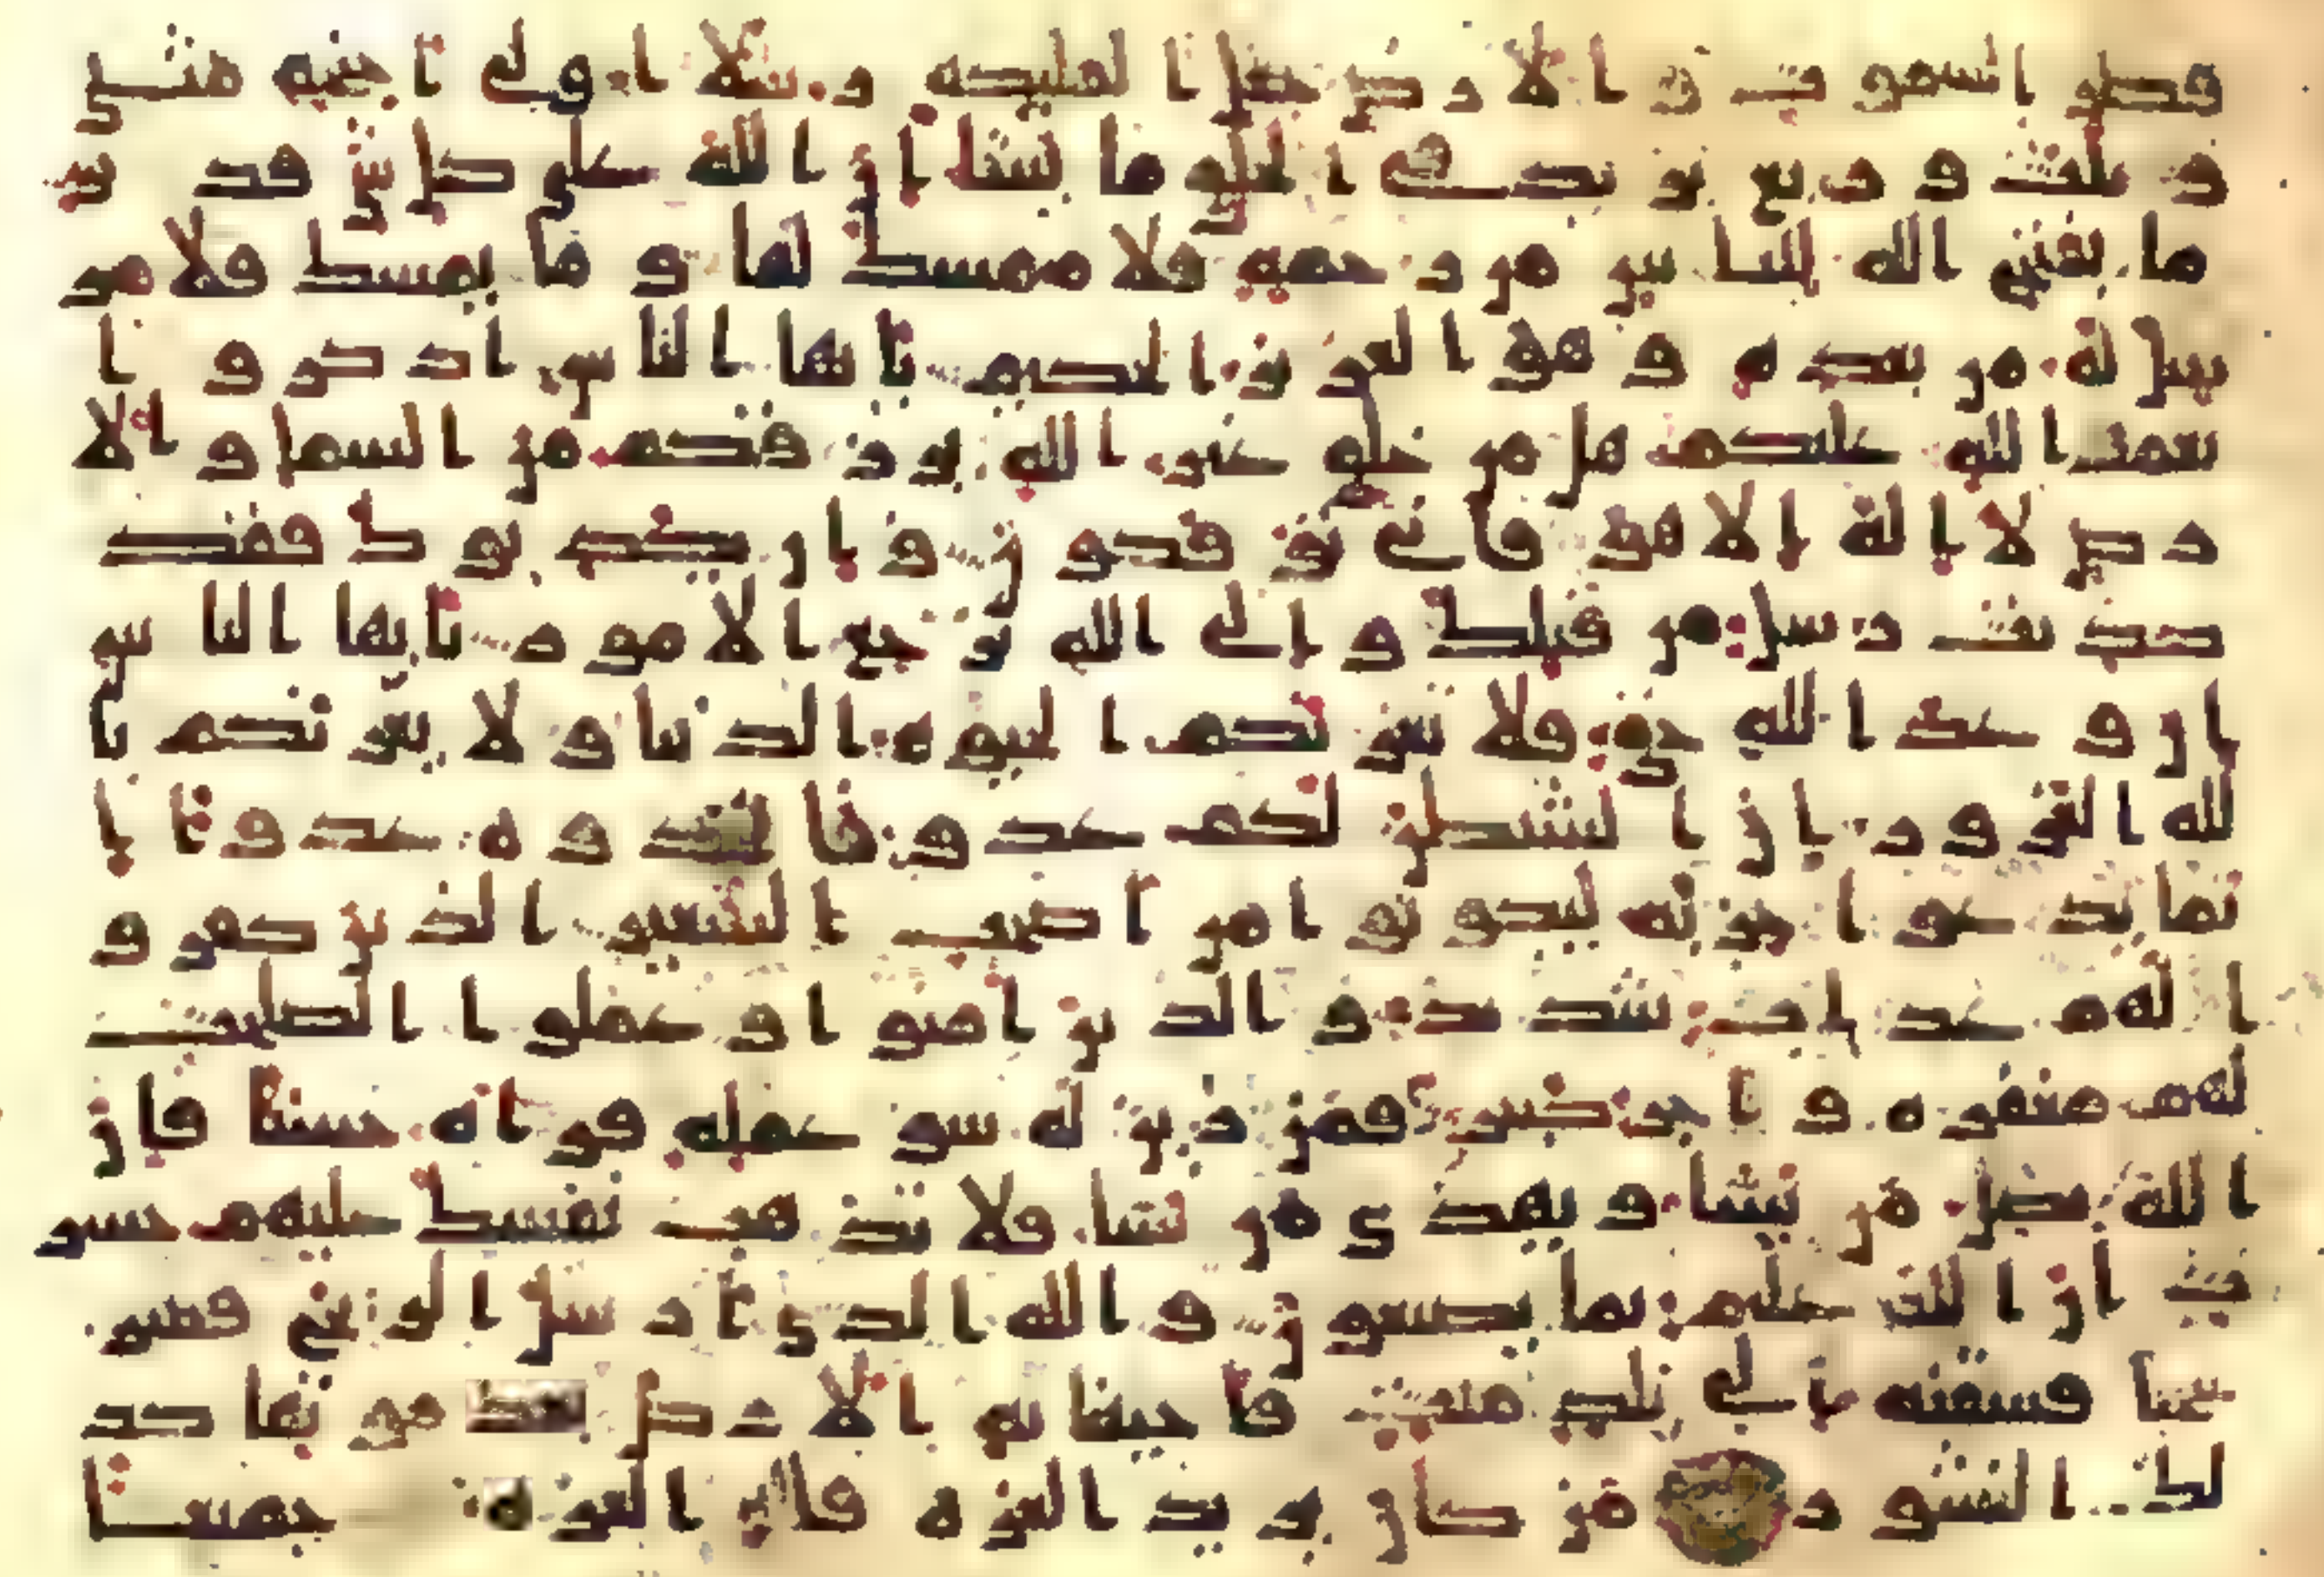 فطر السموت و الارض جعل الملئكه رسلا اولى اجنحه مثنى
و ثلث و ربع يزيد فى الخلق ما يشا ان الله على كل شى قدير
ما يفتح الله للناس من رحمه فلا ممسك لها و ما يمسك فلا مر
سل له من بعده و هو العزيز الحكيم يايها الناس اذكروا
نعمت الله عليكم هل من خلق غير الله يرزقكم من السما و الا
رض لا اله الا هو فانى توفكون و ان يكذبوك فقد
كذبت رسل من قبلك و الى الله ترجع الامور يايها الناس
ان وعد الله حق فلا تغرنكم الحيوه الدنيا و لا يغرنكم با
لله الغرور ان الشيطن لكم عدو فاتخذوه عدوا ا
نما يدعوا حزبه ليكونوا من اصحب السعير الذين كفرو
ا لهم عذاب شديد و الذين امنوا و عملوا الصلحت
لهم مغفره و اجر كبير افمن زين له سو عمله فراه حسنا فان
الله يضل من يشا و يهدى من يشا فلا تذهب نفسك عليهم حسر
ت ان الله عليم بما يصنعون و الله الذى ارسل الريح فتثير
سحبا فسقنه الى بلد ميت فاحيينا به الارض بعد موتها كذ
لك النشور من كان يريد العزه فلله العزه جميعا